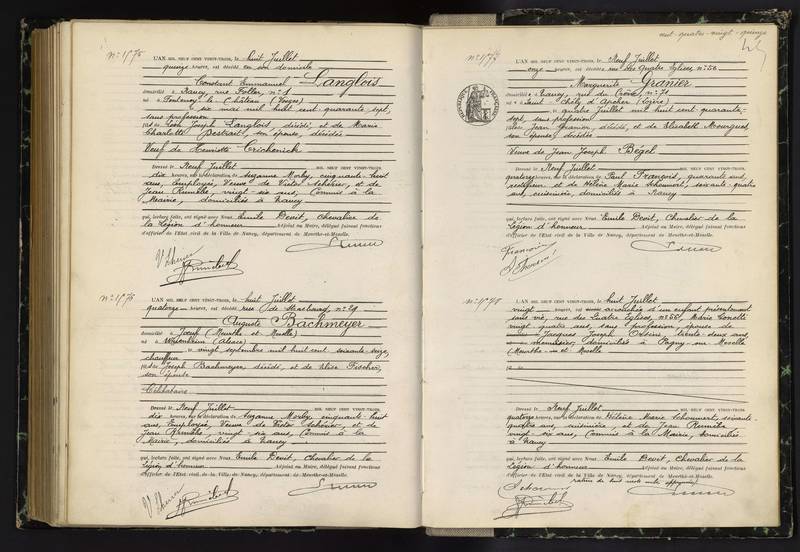 N° 1575
L'AN MIL NEUF CENT VINGT-TROIS, le huit Juillet
quinze heures, est décédé en son domicile
Constant Emmanuel Langlois
domicilié à Nancy, rue Foller, n° 1
né à Fontenoy-le-Château (Vosges)
le six mai mil huit cent quarante sept,
sans profession
fils de Léon Joseph Langlois décédé, et de Marie
Charlotte son épouse, décédée
Veuf de Henriette
Dressé le Neuf Juillet MIL NEUF CENT VINGT-TROIS
dix heures, sur la déclaration de Suzanne Morly, cinquante huit
ans, Employée, Veuve de Victor et de
Jean vingt six ans, Commis à la
Mairie, domiciliés à Nancy
qui, lecture faite, ont signé avec Nous Emile Devit, Chevalier de
la Légion d'honneur Adjoint au Maire, délégué faisant fonctions
d'officier de l'Etat civil de la Ville de Nancy, département de Meurthe-et-Moselle.
N° 1576
L'AN MIL NEUF CENT VINGT-TROIS, le huit Juillet
quatorze heures, est décédé rue de Strasbourg, n° 29
Auguste Bachmeyer
domicilié à Joeuf (Meurthe et Moselle)
né à (Alsace)
le vingt septembre mil huit cent soixante seize,
chauffeur
fils de Joseph Bachmeyer, décédé, et de Elise Fischer,
son épouse
Célibataire
Dressé le Neuf Juillet MIL NEUF CENT VINGT-TROIS
dix heures, sur la déclaration de Suzanne Morly, cinquante huit
ans, Employée, Veuve de Victor et de
Jean vingt six ans, Commis à la
Mairie, domiciliés à Nancy
qui, lecture faite, ont signé avec Nous Emile Devit, Chevalier de la
Légion d'honneur Adjoint au Maire, délégué faisant fonctions
d'officier de l'Etat civil de la Ville de Nancy, département de Meurthe-et-Moselle.
cent quatre-vingt-quinze
N° 1577
L'AN MIL NEUF CENT VINGT-TROIS, le Neuf Juillet
onze heures, est décédée rue des Quatre Eglises, n° 56
Marguerite Granier
domiciliée à Nancy, rue du n° 71
née à Saint Chély d'Apcher (Lozère)
le quatre Juillet mil huit cent quarante-
sept, sans profession
fille de Jean Granier, décédé, et de Elisabeth Mourgues,
son épouse, décédée
Veuve de Jean Joseph Bégel
Dressé le Neuf Juillet MIL NEUF CENT VINGT-TROIS
quatorze heures, sur la déclaration de Paul François, quarante ans,
et de Hélène Marie Schoumert, soixante-quatre
ans, cuisinière, domiciliés à Nancy
qui, lecture faite, ont signé avec Nous Emile Devit, Chevalier de la
Légion d'honneur Adjoint au Maire, délégué faisant fonctions
d'officier de l'Etat civil de la Ville de Nancy, département de Meurthe-et-Moselle.
François
N° 1578
L'AN MIL NEUF CENT VINGT-TROIS, le huit Juillet
vingt heures, est accouchée d'un enfant présentement
sans vie, rue des Quatre Eglises, n° 56, Marie
vingt quatre ans, sans profession, épouse de
Jacques Joseph trente deux ans,
menuisier, domiciliés à Pagny-sur-Moselle
(Meurthe et Moselle
Dressé le Neuf Juillet MIL NEUF CENT VINGT-TROIS
quatorze heures, sur la déclaration de Hélène Marie Schoumert, soixante-
quatre ans, cuisinière, et de Jean
vingt six ans, Commis à la Mairie, domiciliés
à Nancy
qui, lecture faite, ont signé avec Nous Emile Devit, Chevalier de la
Légion d'honneur Adjoint au Maire, délégué faisant fonctions
d'officier de l'Etat civil de la Ville de Nancy, département de Meurthe-et-Moselle.